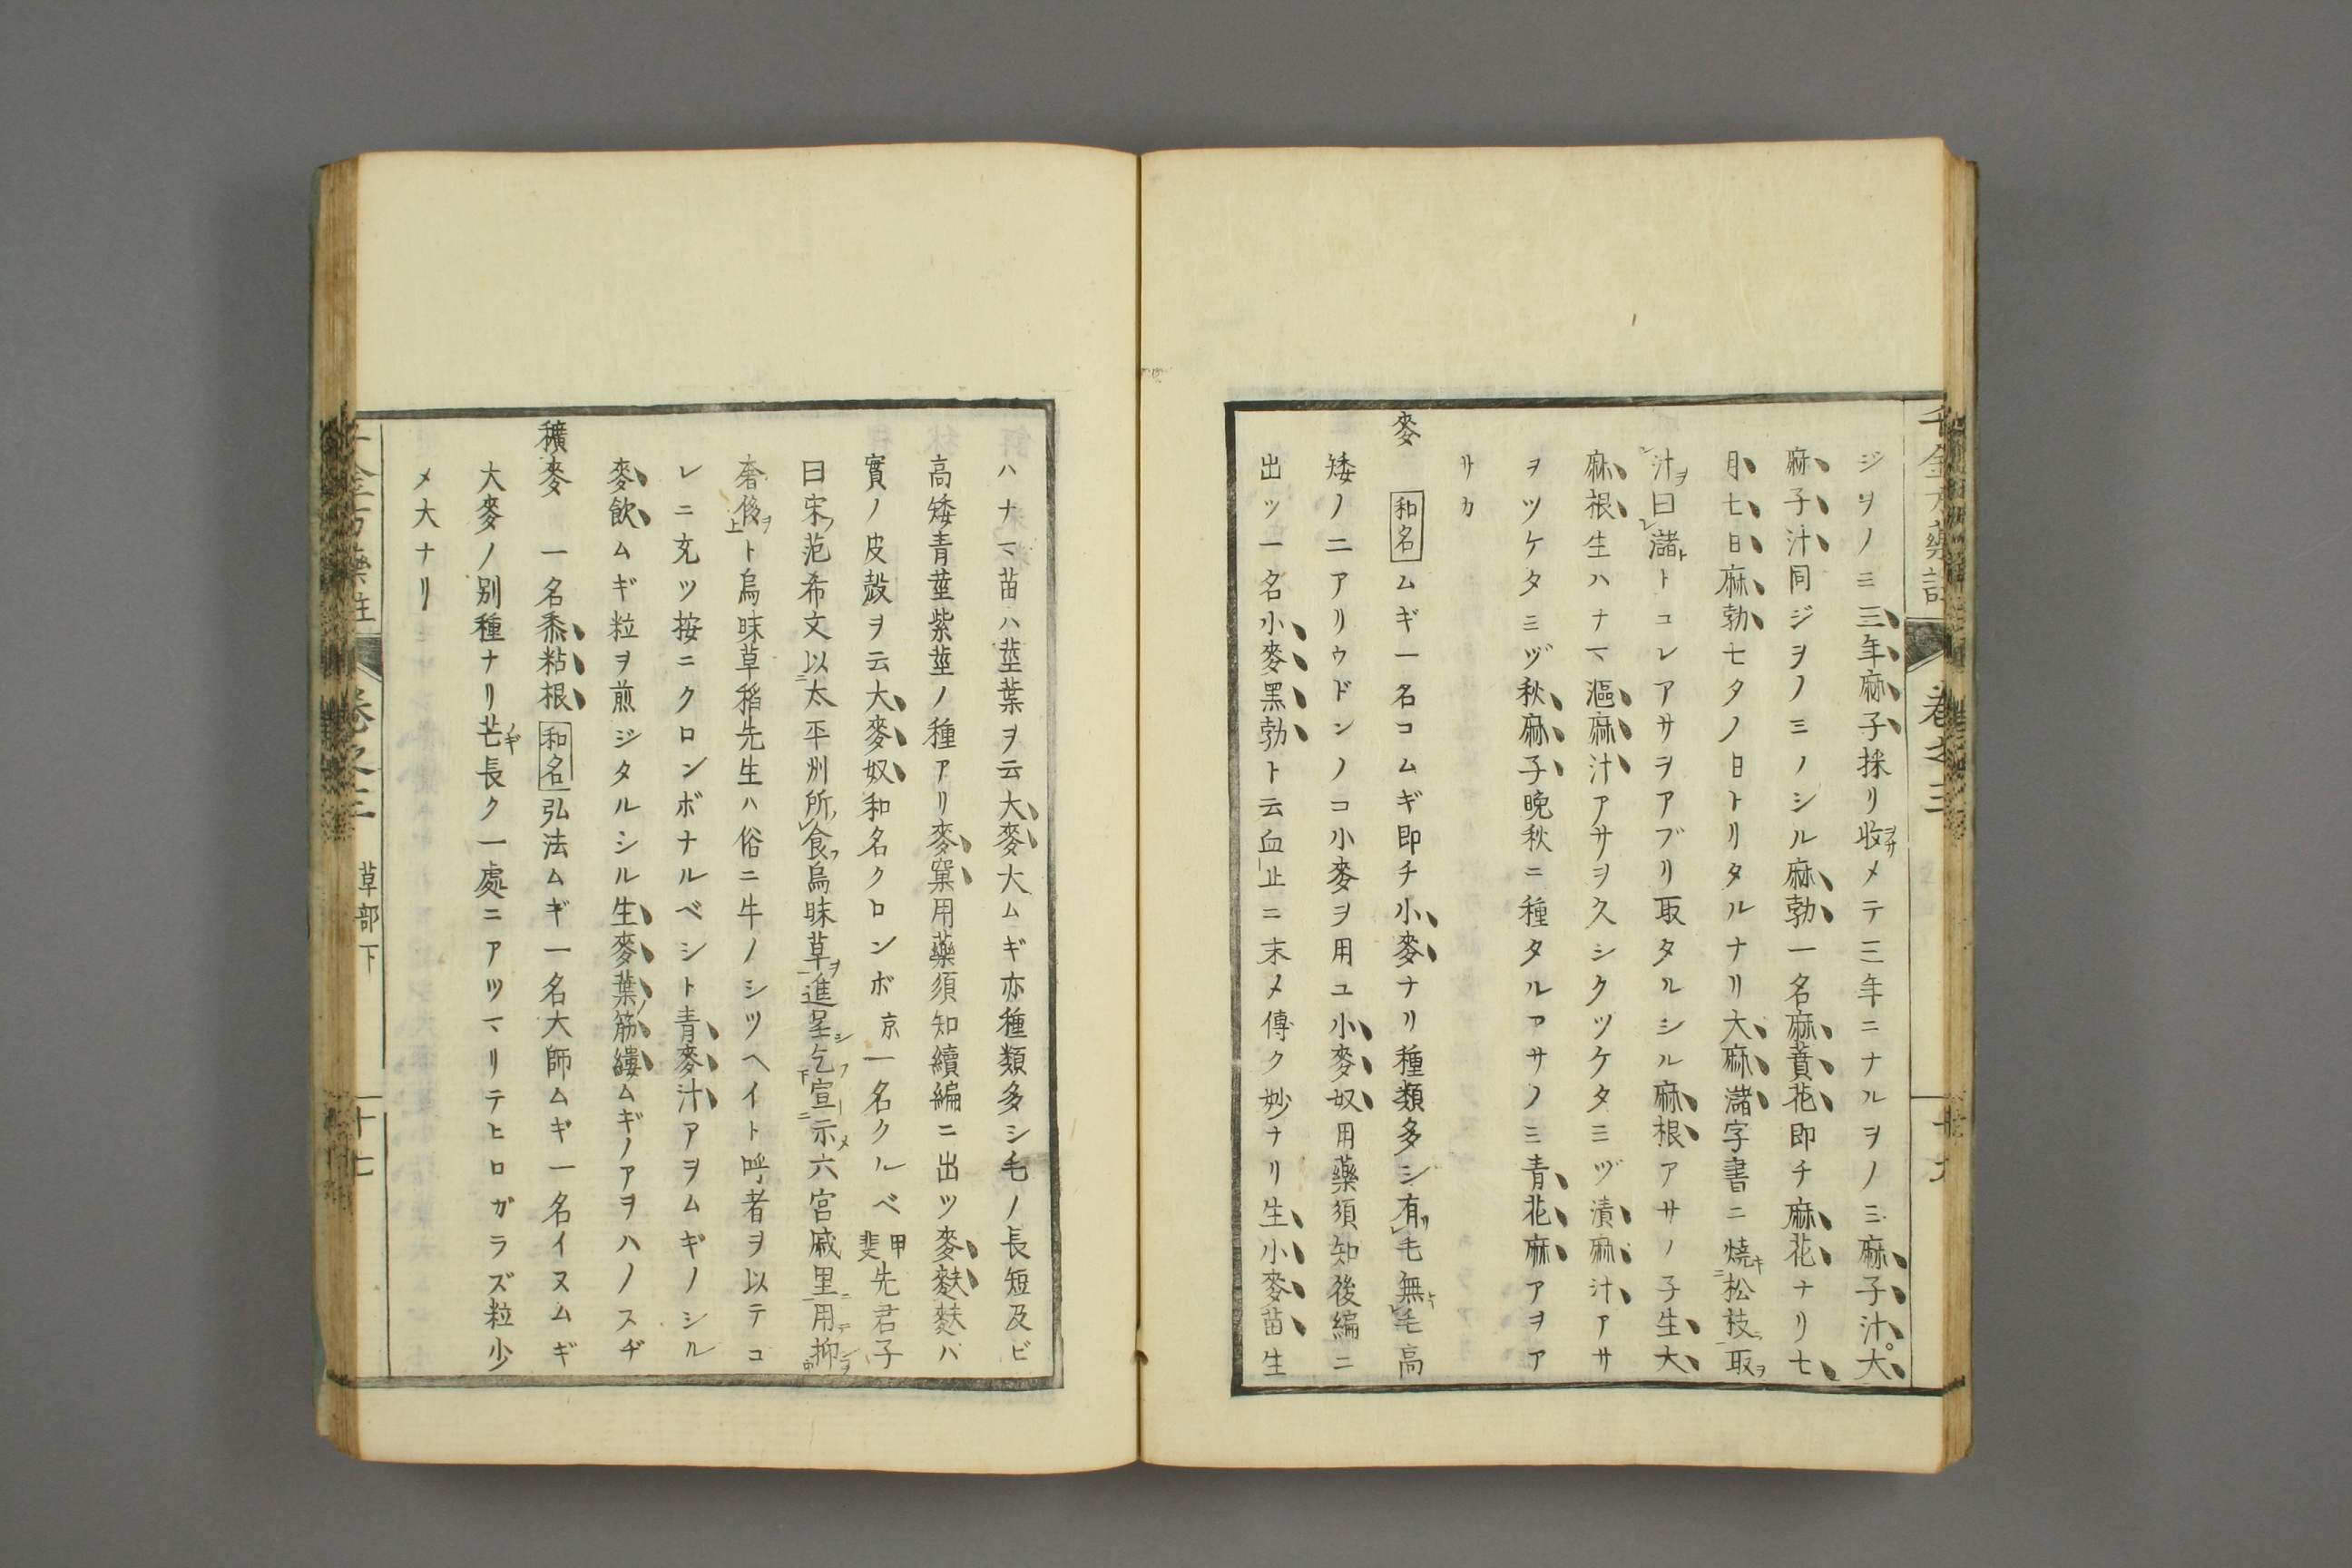 ジヲノミ三年麻子採リ收メテ三年ニナルヲノミ麻子汁大
麻子汁同ジヲノミノシル麻勃一名麻蕡花即チ麻花ナリ七
月七日麻勃七夕ノ日トリタルナリ大麻藩字書ニ燒松枝取
汁曰藩トコレアサヲアブリ取タルシル麻根アサノ子生大
麻根生ハナマ漚麻汁アサヲ久シクツケタミヅ漬麻汁アサ
ヲツケタミヅ秋麻子晩秋ニ種タルアサノミ青花麻アヲア
サカ
麥 和名ムギ一名コムギ即チ小麥ナリ種類多シ有毛無毛高
矮ノ二アリウドンノコ小麥ヲ用ユ小麥奴用藥須知後編ニ
出ツ一名小麥黑勃ト云血止ニ末メ傳ク妙ナリ生小麥苗生
ハナマ苗ハ莖葉ヲ云大麥大ムギ亦種類多シ毛ノ長短及ビ
高矮青莖紫莖ノ種アリ麥窠用藥須知續編ニ出ツ麥麩麩ハ
實ノ皮殼ヲ云大麥奴和名クロンボ京一名クルベ甲斐先君子
曰宋范希文以太平州所食烏昧草進呈乞宣示六宮戚里用抑
奢後ト烏昧草稻先生ハ俗ニ牛ノシツヘイト呼者ヲ以テコ
レニ充ツ按ニクロンボナルベシト青麥汁アヲムギノシル
麥飲ムギ粒ヲ煎ジタルシル生麥葉筋縷ムギノアヲハノスヂ
穬麥 一名黍粘根 和名弘法ムギ一名大師ムギ一名イヌムギ
大麥ノ別種ナリ芒長ク一處ニアツマリテヒロガラズ粒少
メ大ナリ
千金方藥註 卷之三 草部下 十七